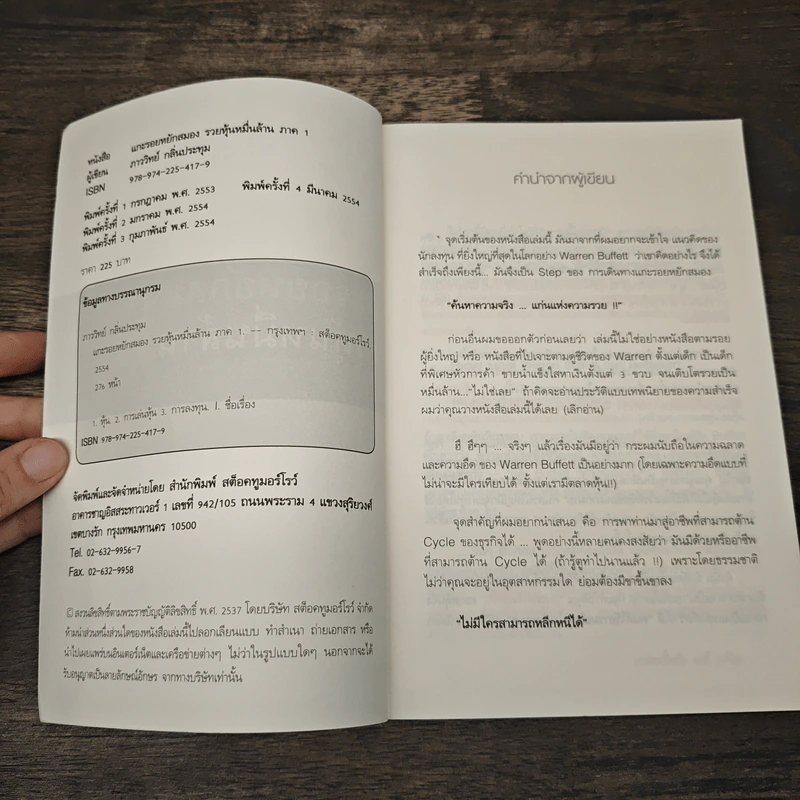 หนังสือ แกะรอยหยักสมอง รวยหุ้นหมื่นล้าน ภาค 1
ผู้เขียน ภาววิทย์ กลิ่นประทุม
ISBN 978-974-225-417-9
พิมพ์ครั้งที่ 1 กรกฎาคม พ.ศ. 2553 พิมพ์ครั้งที่ 4 มีนาคม 2554
พิมพ์ครั้งที่ 2 มกราคม พ.ศ. 2554
พิมพ์ครั้งที่ 3 กุมภาพันธ์ พ.ศ. 2554
ราคา 225 บาท
ข้อมูลทางบรรณานุกรม
ภาววิทย์ กลิ่นประทุม
แกะรอยหยักสมอง รวยหุ้นหมื่นล้าน ภาค 1. -- กรุงเทพฯ : สต็อคทูมอร์โรว์,
2554
276 หน้า
1. หุ้น 2. การเล่นหุ้น 3. การลงทุน. I. ชื่อเรื่อง
ISBN 978-974-225-417-9
จัดพิมพ์และจัดจำหน่ายโดย สำนักพิมพ์ สต็อคทูมอร์โรว์
อาคารชาญอิสสระทาวเวอร์ 1 เลขที่ 942/105 ถนนพระราม 4 แขวงสุริยวงศ์
เขตบางรัก กรุงเทพมหานคร 10500
Tel. 02-632-9956-7
Fax. 02-632-9958
© สงวนลิขสิทธิ์ตามพระราชบัญญัติลิขสิทธิ์ พ.ศ. 2537 โดยบริษัท สต็อคทูมอร์โรว์ จำกัด
ห้ามนำส่วนหนึ่งส่วนใดของหนังสือเล่มนี้ไปลอกเลียนแบบ ทำสำเนา ถ่ายเอกสาร หรือ
นำไปเผยแพร่บนอินเตอร์เน็ตและเครือข่ายต่างๆ ไม่ว่าในรูปแบบใดๆ นอกจากจะได้
รับอนุญาตเป็นลายลักษณ์อักษร จากทางบริษัทเท่านั้น
คำนำจากผู้เขียน
จุดเริ่มต้นของหนังสือเล่มนี้ มันมาจากที่ผมอยากจะเข้าใจ แนวคิดของ
นักลงทุน ที่ยิ่งใหญ่ที่สุดในโลกอย่าง Warren Buffett ว่าเขาคิดอย่างไร จึงได้
สำเร็จถึงเพียงนี้... มันจึงเป็น Step ของ การเดินทางแกะรอยหยักสมอง
"ค้นหาความจริง ... แก่นแห่งความรวย !!"
ก่อนอื่นผมขอออกตัวก่อนเลยว่า เล่มนี้ไม่ใช่อย่างหนังสือตามรอย
ผู้ยิ่งใหญ่ หรือ หนังสือที่ไปเจาะตามดูชีวิตของ Warren ตั้งแต่เด็ก เป็นเด็ก
ที่พิเศษหัวการค้า ขายน้ำแข็งใสหาเงินตั้งแต่ 3 ขวบ จนเติบโตรวยเป็น
หมื่นล้าน..."ไม่ใช่เลย" ถ้าคิดจะอ่านประวัติแบบเทพนิยายของความสำเร็จ
ผมว่าคุณวางหนังสือเล่มนี้ได้เลย (เลิกอ่าน)
ฮี ฮี่ๆๆ ... จริงๆ แล้วเรื่องมันมีอยู่ว่า กระผมนับถือในความฉลาด
และความอึด ของ Warren Buffett เป็นอย่างมาก (โดยเฉพาะความอึดแบบที่
ไม่น่าจะมีใครเทียบได้ ตั้งแต่เรามีตลาดหุ้น!!)
จุดสำคัญที่ผมอยากนำเสนอ คือ การพาท่านมาสู่อาชีพที่สามารถต้าน
Cycle ของธุรกิจได้ ... พูดอย่างนี้หลายคนคงสงสัยว่า มันมีด้วยหรืออาชีพ
ที่สามารถต้าน Cycle ได้ (ถ้ารู้ตูทำไปนานแล้ว !!) เพราะโดยธรรมชาติ
ไม่ว่าคุณจะอยู่ในอุตสาหกรรมใด ย่อมต้องมีขาขึ้นขาลง
"ไม่มีใครสามารถหลีกหนีได้"